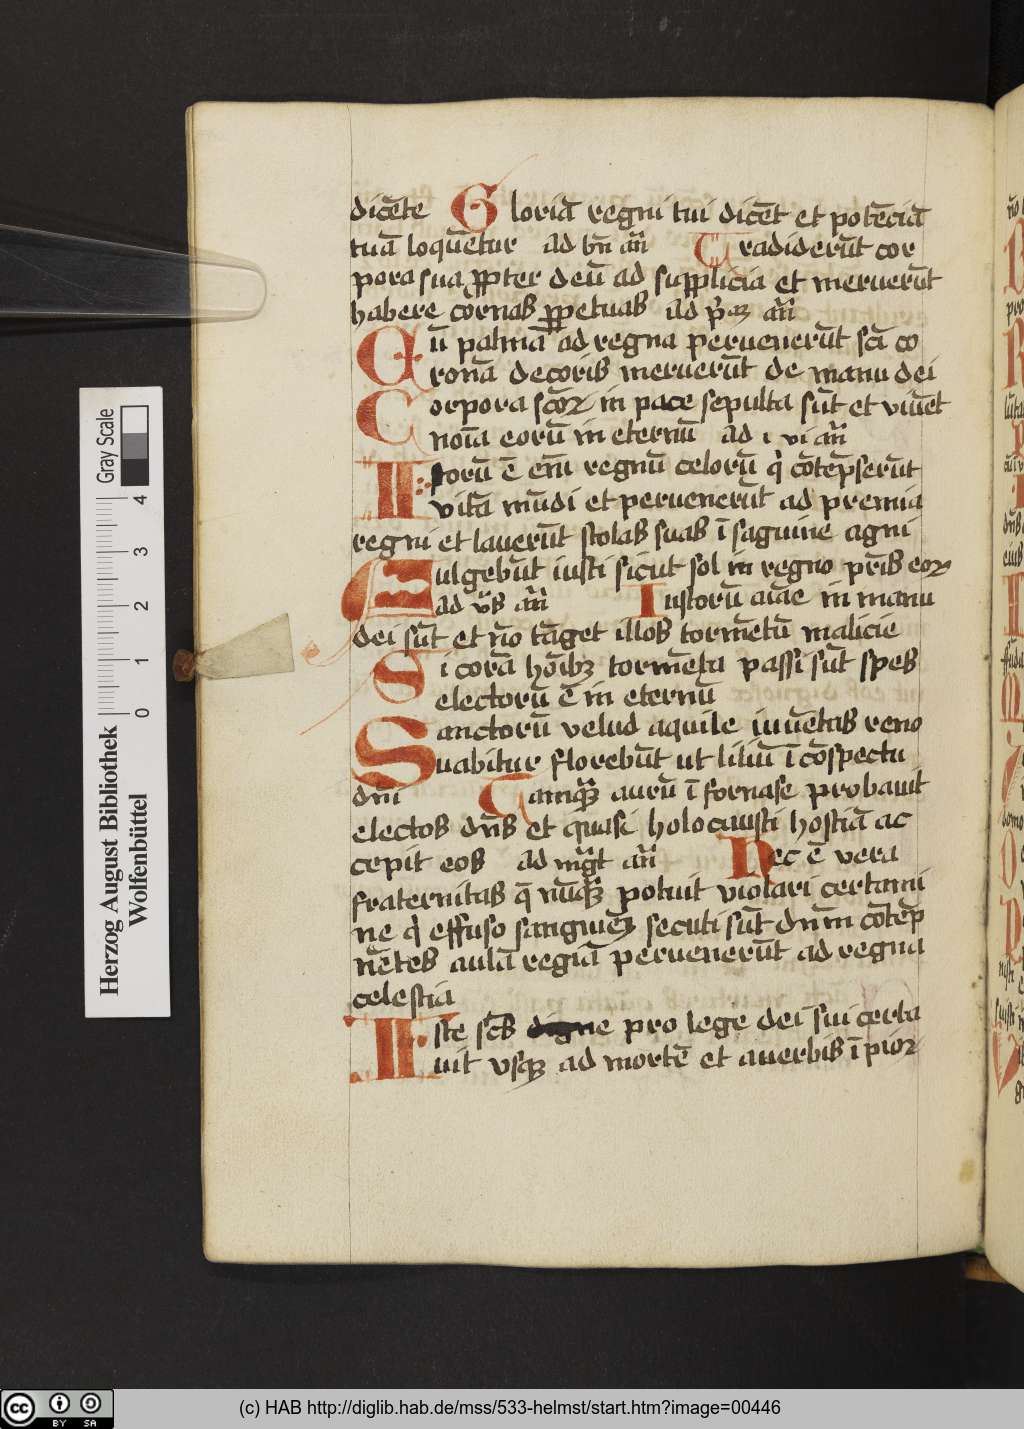 dicēte Gloriā regni tui dicēt et potēciā
tuā loquētur ad bn̄ an̄ Tradiderūt cor
pora sua ꝓpter deū ad supplicia et meruerūt
habere corōnas ꝑpetuas ad p̄ an̄
Cū palma ad regna peruenerūt sc̄i co
ronā decoris meruerūt de manu dei
Corpora scōꝝ in pace sepulta sūt et viuēt
noīa eorū in eternū ad i vi an̄
Istorū ē em̄ regnū celorū q̇ cōtēpserūt
vitā mūdi et peruenerūt ad premia
regni et lauerūt stolas suas ī saguine agni
Fulgebūt iusti sicut sol in regno pr̄is eoꝝ
ad v̄s an̄ Iustorū aīae in manu
dei sūt et nō tāget illos tormētū malicie
Si corā hoībꝫ tormēta passi sūt spes
electorū ē in eternū
Sanctorū velud aquile iuuētas reno
uabitur florebūt ut liliū ī cōspectu
dn̄i Tamqꝫ aurū ī fornase probauit
electos dn̄s et quasi holocausti hostiā ac
cepit eos ad mgt an̄ Hec ē vera
fraternitas q̄ nūqꝫ potuit violari certami
ne q̇ effuso sanguinē secuti sūt dn̄m cōtēp
nētes aulā regiā peruenerūt ad regna
celestia
Iste sc̄s digne pro lege dei sui certa
uit vsqꝫ ad mortē et a uerbis ī pioꝝ
Gray Scale
4
3
2
1
0
Herzog August Bibliothek
Wolfenbüttel
cc BY SA
(c) HAB http://diglib.hab.de/mss/533-helmst/start.htm?image=00446